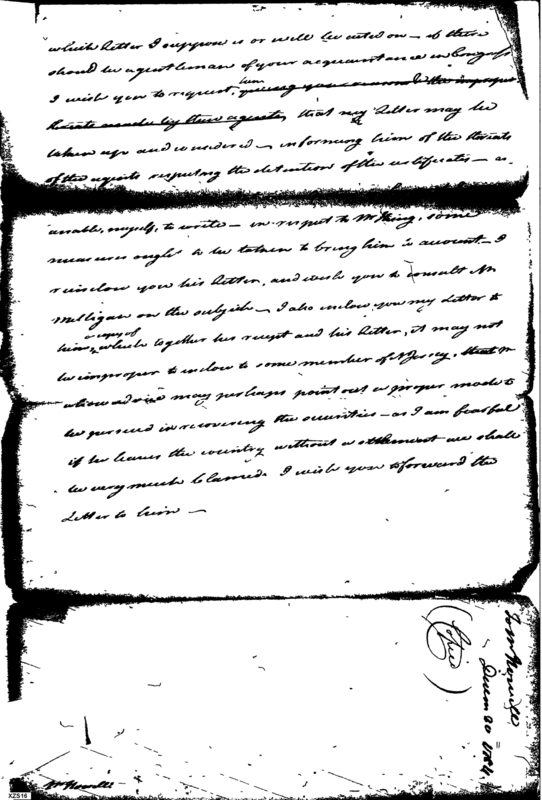 which letter I suppose is or will be acted on — if there
should be a gentleman of your acquaintance in Congress
him
I wish you to request, giving your reasons & the improper
threats made by these agents, that my letter may be
taken up and considered — informing him of the threats
of the agents respecting the detention of the certificates — as
unable, myself, to write — in respect to Mr King, some
measures ought to be taken to bring him to account — I
reinclose you his letter, and wish you to consult Mr
Milligan on the subject — I also inclose you my Letter to
a copy of
him, which together his receipt and his letter, it may not
be improper to inclose to some member of N Jersey, that
whose advice may perhaps point out a proper mode to
be pursued in recovering the securities — as I am fearful
if he leaves the country without a settlement we shall
be very much blamed. I wish you to forward the
Letter to him —
To Mr Howell
Decem 20 1784
(Copied)
Mr Howell
XZS16